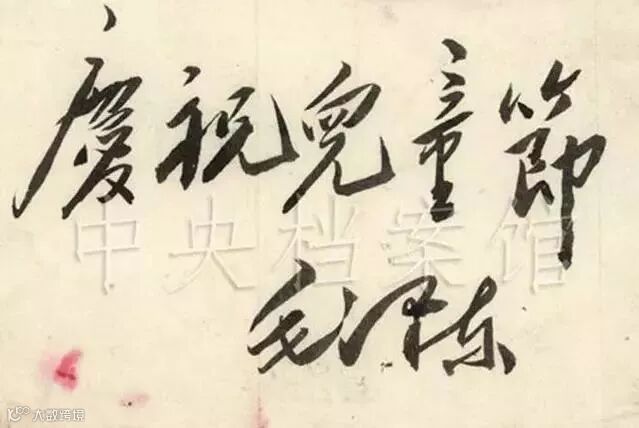 慶祝兒童節
中央档案馆
毛泽东
大数跨境